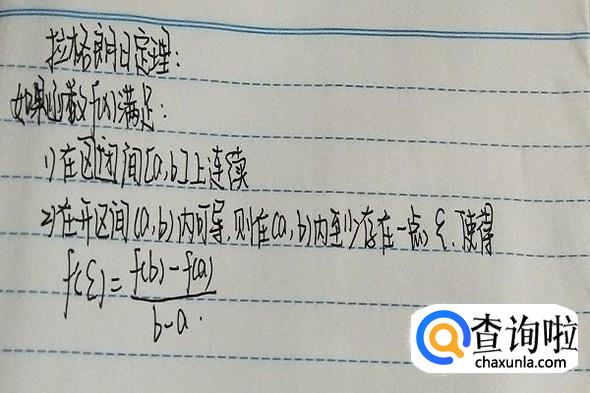 拉格朗日定理:
如果函数f(x)满足:
1)在区闭间[a,b]上连续
2)在开区间(a,b)内可导,则在(a,b)内至少存在一点ξ,使得
f(ξ)=
f(b)-f(a)
b-a.
查询啦
chaxunla.com